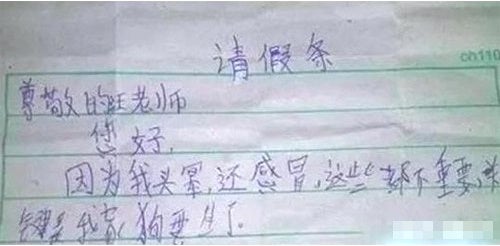 请假条
ch110
尊敬的旺老师
您好,
因为我头晕,还感冒,这些都不重要,关
键是我家狗要生了.